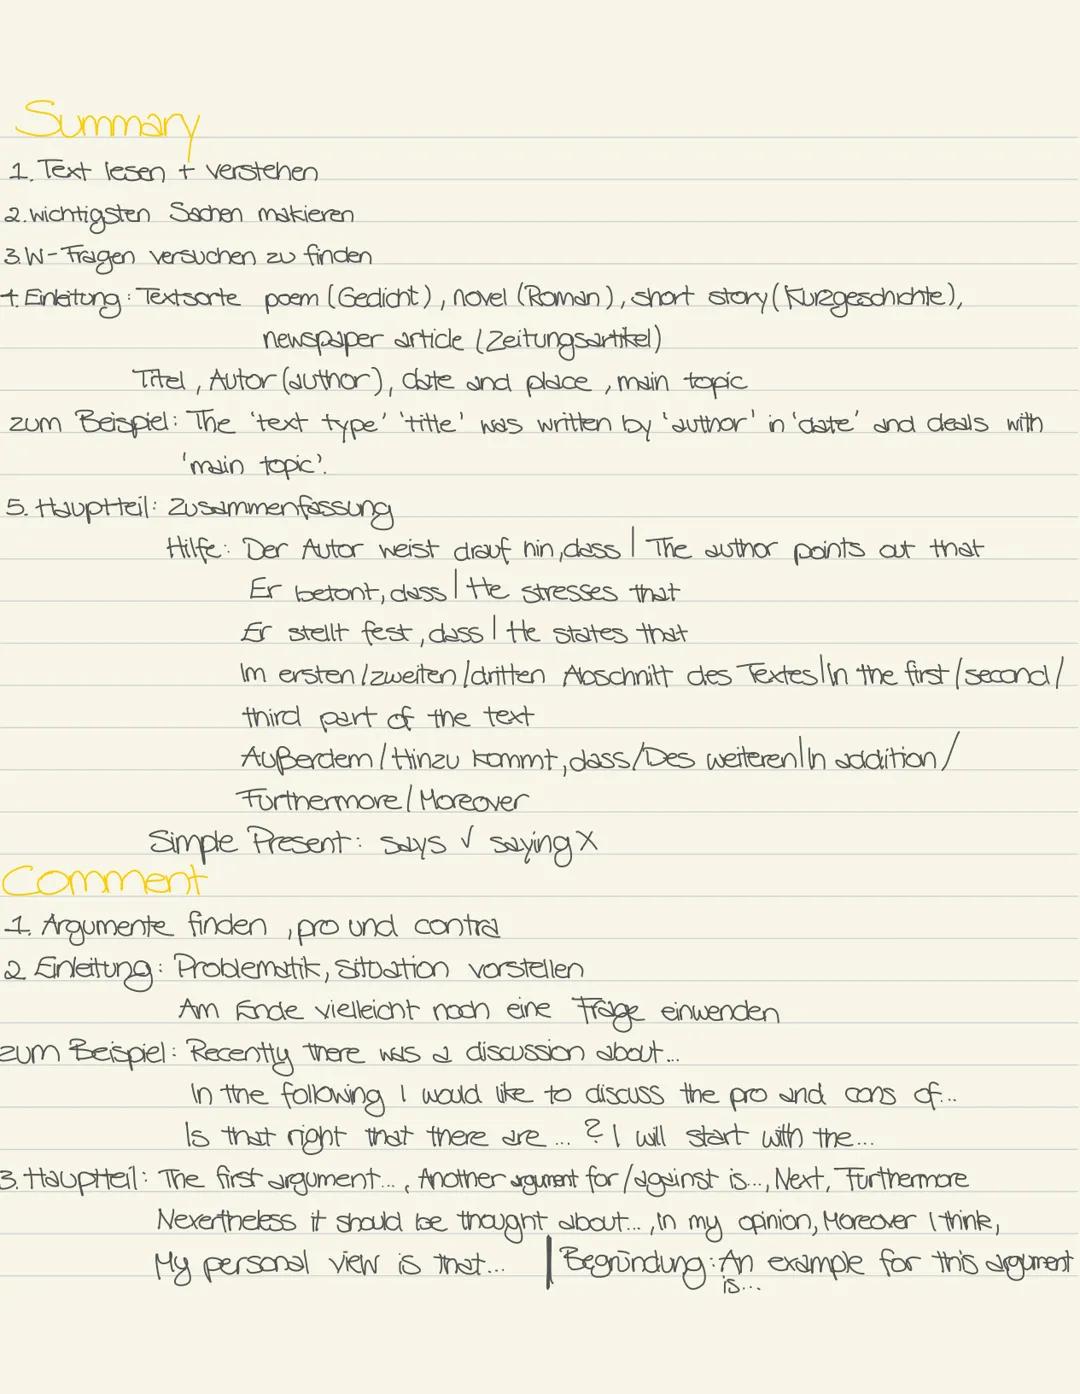 Summary
1. Text lesen + verstehen
2. wichtigsten Sachen makieren
3. W-Fragen versuchen zu finden
4. Einleitung: Textsorte poem (Gedicht), novel (Roman), short story (Kurzgeschichte),
newspaper article (Zeitungsartikel)
Titel, Autor (author), date and place, main topic
zum Beispiel: The 'text type' 'title' was written by 'author' in 'date' and deals with
'main topic'.
5. Hauptteil: Zusammenfassung
Hilfe: Der Autor weist drauf hin, dass | The author points out that
Er betont, dass | He stresses that
Er stellt fest, dass | He states that
Im ersten/zweiten/dritten Abschnitt des Textes | In the first/second/
third part of the text
Außerdem/Hinzu kommt, dass/Des weiteren | In addition/
Furthermore/Moreover
Simple Present: says ✓ saying X
Comment
1. Argumente finden, pro und contra
2. Einleitung: Problematik, Situation vorstellen
Am Ende vielleicht noch eine Frage einwenden
zum Beispiel: Recently there was a discussion about...
In the following I would like to discuss the pro and cons of...
Is that right that there are ... ? I will start with the...
3. Hauptteil: The first argument..., Another argument for/against is..., Next, Furthermore
Nexertheless it should be thought about..., In my opinion, Moreover I think,
My personal view is that... | Begründung: An example for this argument
is...